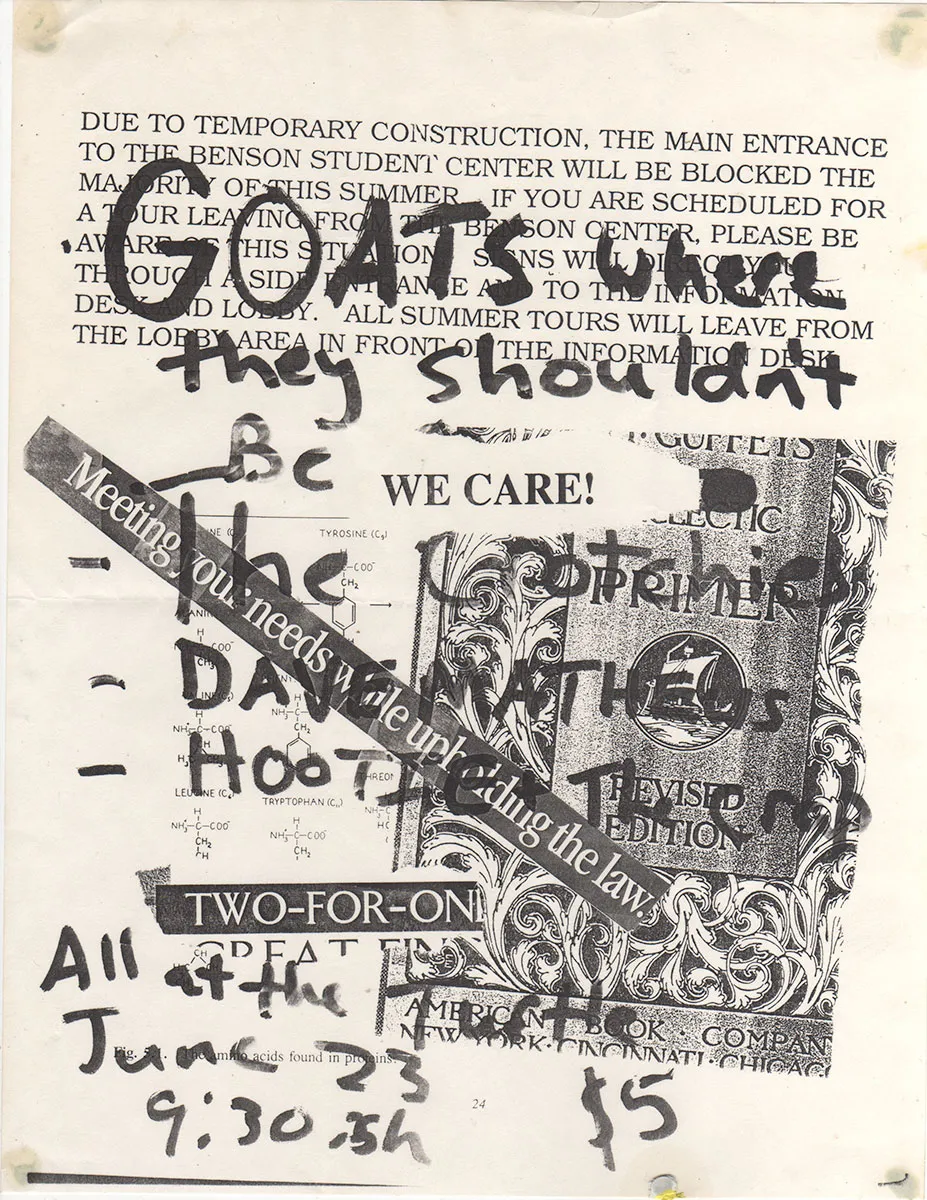 DUE TO TEMPORARY CONSTRUCTION, THE MAIN ENTRANCE
TO THE BENSON STUDENT CENTER WILL BE BLOCKED THE
MAJORITY OF THIS SUMMER. IF YOU ARE SCHEDULED FOR
A TOUR LEAVING FROM THE BENSON CENTER, PLEASE BE
AWARE OF THIS SITUATION. SIGNS WILL DIRECT YOU
THROUGH A SIDE ENTRANCE AND TO THE INFORMATION
DESK AND LOBBY. ALL SUMMER TOURS WILL LEAVE FROM
THE LOBBY AREA IN FRONT OF THE INFORMATION DESK
GOATS where
they shouldn't
Be
WE CARE!
GUFFEY'S
CLECTIC
PRIMER
REVISED
EDITION
AMERICAN BOOK COMPAN
NEW YORK · CINCINNATI · CHICAGO
Meeting your needs while upholding the law.
TYROSINE
LEUCINE
TRYPTOPHAN
THREON
- The
- DAVE MATHEWS
- HOOTIE
TWO-FOR-ONE
GREAT FIN
All at the
June 23
9:30.ish
$5
Fig. 5.1. The amino acids found in proteins.
24